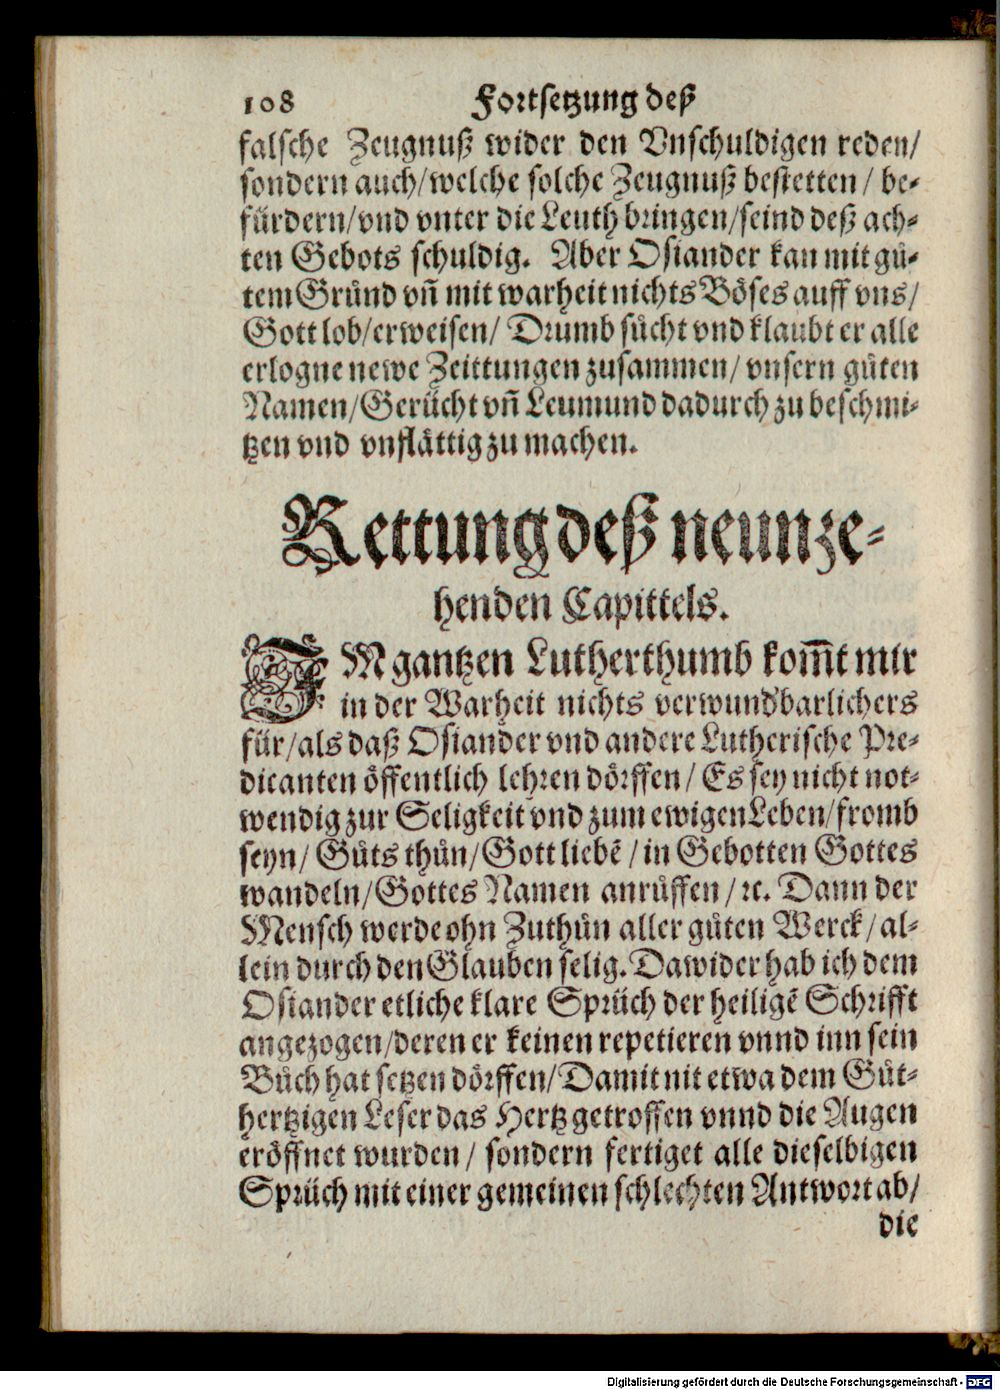 108 Fortsetzung deß
falsche Zeugnuß wider den Vnschuldigen reden/
sondern auch/welche solche Zeugnuß bestetten / be-
fürdern/vnd vnter die Leuth bringen/seind deß ach-
ten Gebots schuldig. Aber Osiander kan mit gů-
tem Gründ vñ mit warheit nichts Böses auff vns/
Gott lob/erweisen/ Drumb sůcht vnd klaubt er alle
erlogne newe Zeittungen zusammen/ vnsern gůten
Namen/Gerücht vñ Leumund dadurch zu beschmi-
tzen vnd vnflättig zu machen.
Rettung deß neunze-
henden Capittels.
IM gantzen Lutherthumb kom̃t mir
in der Warheit nichts verwundbarlichers
für/als daß Osiander vnd andere Lutherische Pre-
dicanten öffentlich lehren dörffen/ Es sey nicht not-
wendig zur Seligkeit vnd zum ewigen Leben/fromb
seyn/ Gůts thůn/Gott liebẽ / in Gebotten Gottes
wandeln/Gottes Namen anrůffen /ꝛc. Dann der
Mensch werde ohn Zuthůn aller gůten Werck/ al-
lein durch den Glauben selig. Dawider hab ich dem
Osiander etliche klare Sprüch der heiligẽ Schrifft
angezogen/deren er keinen repetieren vnnd inn sein
Bůch hat setzen dörffen/Damit nit etwa dem Gůt-
hertzigen Leser das Hertz getroffen vnnd die Augen
eröffnet wurden / sondern fertiget alle dieselbigen
Sprüch mit einer gemeinen schlechten Antwort ab/
die
Digitalisierung gefördert durch die Deutsche Forschungsgemeinschaft - DFG